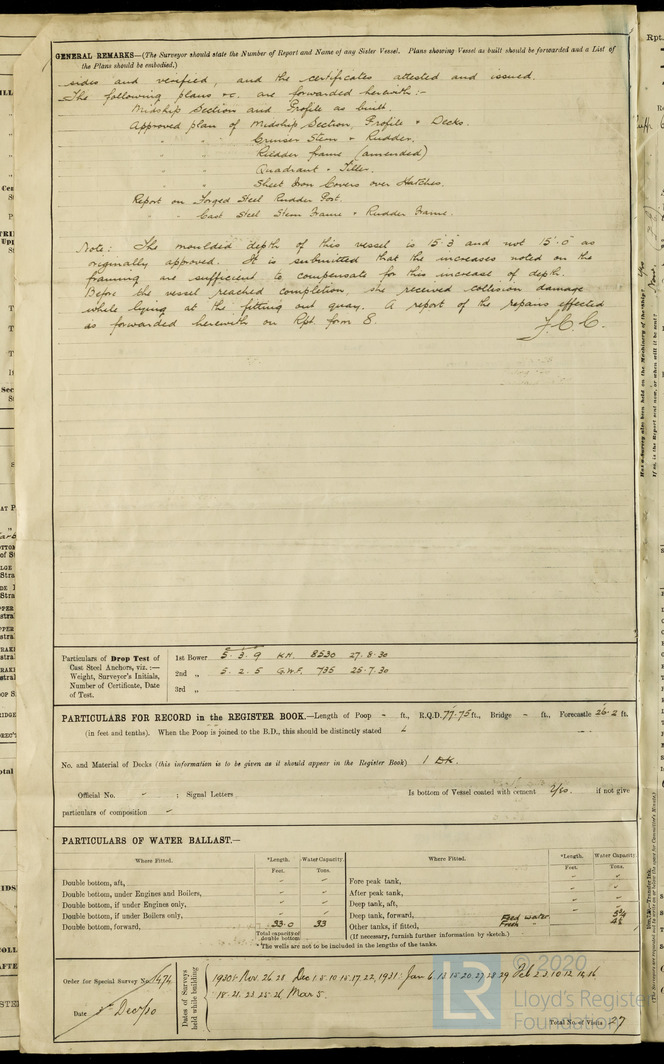 GENERAL REMARKS—(The Surveyor should state the Number of Report and Name of any Sister Vessel. Plans showing Vessel as built should be forwarded and a List of
the Plans should be embodied.)
sides and verified, and the certificates attested and issued.
The following plans &c. are forwarded herewith:-
Midship Section and Profile as built.
Approved plan of Midship Section, Profile & Decks.
" " Cruiser Stern & Rudder.
" " Rudder frame (amended)
" " Quadrant & Tiller.
" " Sheet Iron Covers over Hatches.
Report on Forged Steel Rudder Post.
" " Cast Steel Stern Frame & Rudder Frame.
Note: The moulded depth of this vessel is 15'3" and not 15'0" as
originally approved. It is submitted that the increases noted on the
framing are sufficient to compensate for this increase of depth.
Before the vessel reached completion, she received collision damage
while lying at the fitting out quay. A report of the repairs effected
as forwarded herewith on Rpt. form 8.
J.C.C.
Particulars of Drop Test of
Cast Steel Anchors, viz.:—
Weight, Surveyor's Initials,
Number of Certificate, Date
of Test.
1st Bower 5.3.9 K.H. 8530 27.8.30
2nd „ 5.2.5 G.W.F. 735 25.7.30
3rd „
PARTICULARS FOR RECORD in the REGISTER BOOK.—Length of Poop - ft., R.Q.D. 77.75 ft., Bridge - ft., Forecastle 26.2 ft.
(in feet and tenths). When the Poop is joined to the B.D., this should be distinctly stated
No. and Material of Decks (this information is to be given as it should appear in the Register Book) 1 Dk.
Official No. - ; Signal Letters Is bottom of Vessel coated with cement Yes. if not give
particulars of composition -
PARTICULARS OF WATER BALLAST.—
Where Fitted. *Length. Water Capacity. Where Fitted. *Length. Water Capacity.
Feet. Tons. Feet. Tons.
Double bottom, aft, " " Fore peak tank, " "
Double bottom, under Engines and Boilers, " " After peak tank, " "
Double bottom, if under Engines only, " " Deep tank, aft, " "
Double bottom, if under Boilers only, " " Deep tank, forward, Feed water
Double bottom, forward, 33.0 33 Other tanks, if fitted, Fresh "
Total capacity of
double bottom
(If necessary, furnish further information by sketch.)
* The wells are not to be included in the lengths of the tanks.
Order for Special Survey No. 1474
Date Dec/30
Dates of Surveys
held while building
1930: Nov. 26. 28 Dec 1. 8. 10. 15. 17. 22, 1931: Jan 6. 13. 15. 20. 27. 28. 29 Feb 2. 3. 10. 12. 16
18. 21. 23. 25. 26 Mar 5.
Total No. of Visits 27
© 2020
LR
Lloyd's Register
Foundation